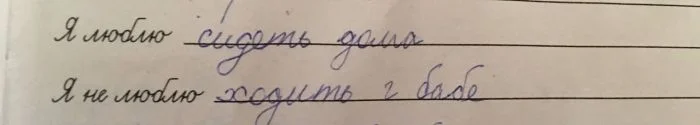 Я люблю сидеть дома
Я не люблю ходить г бабе